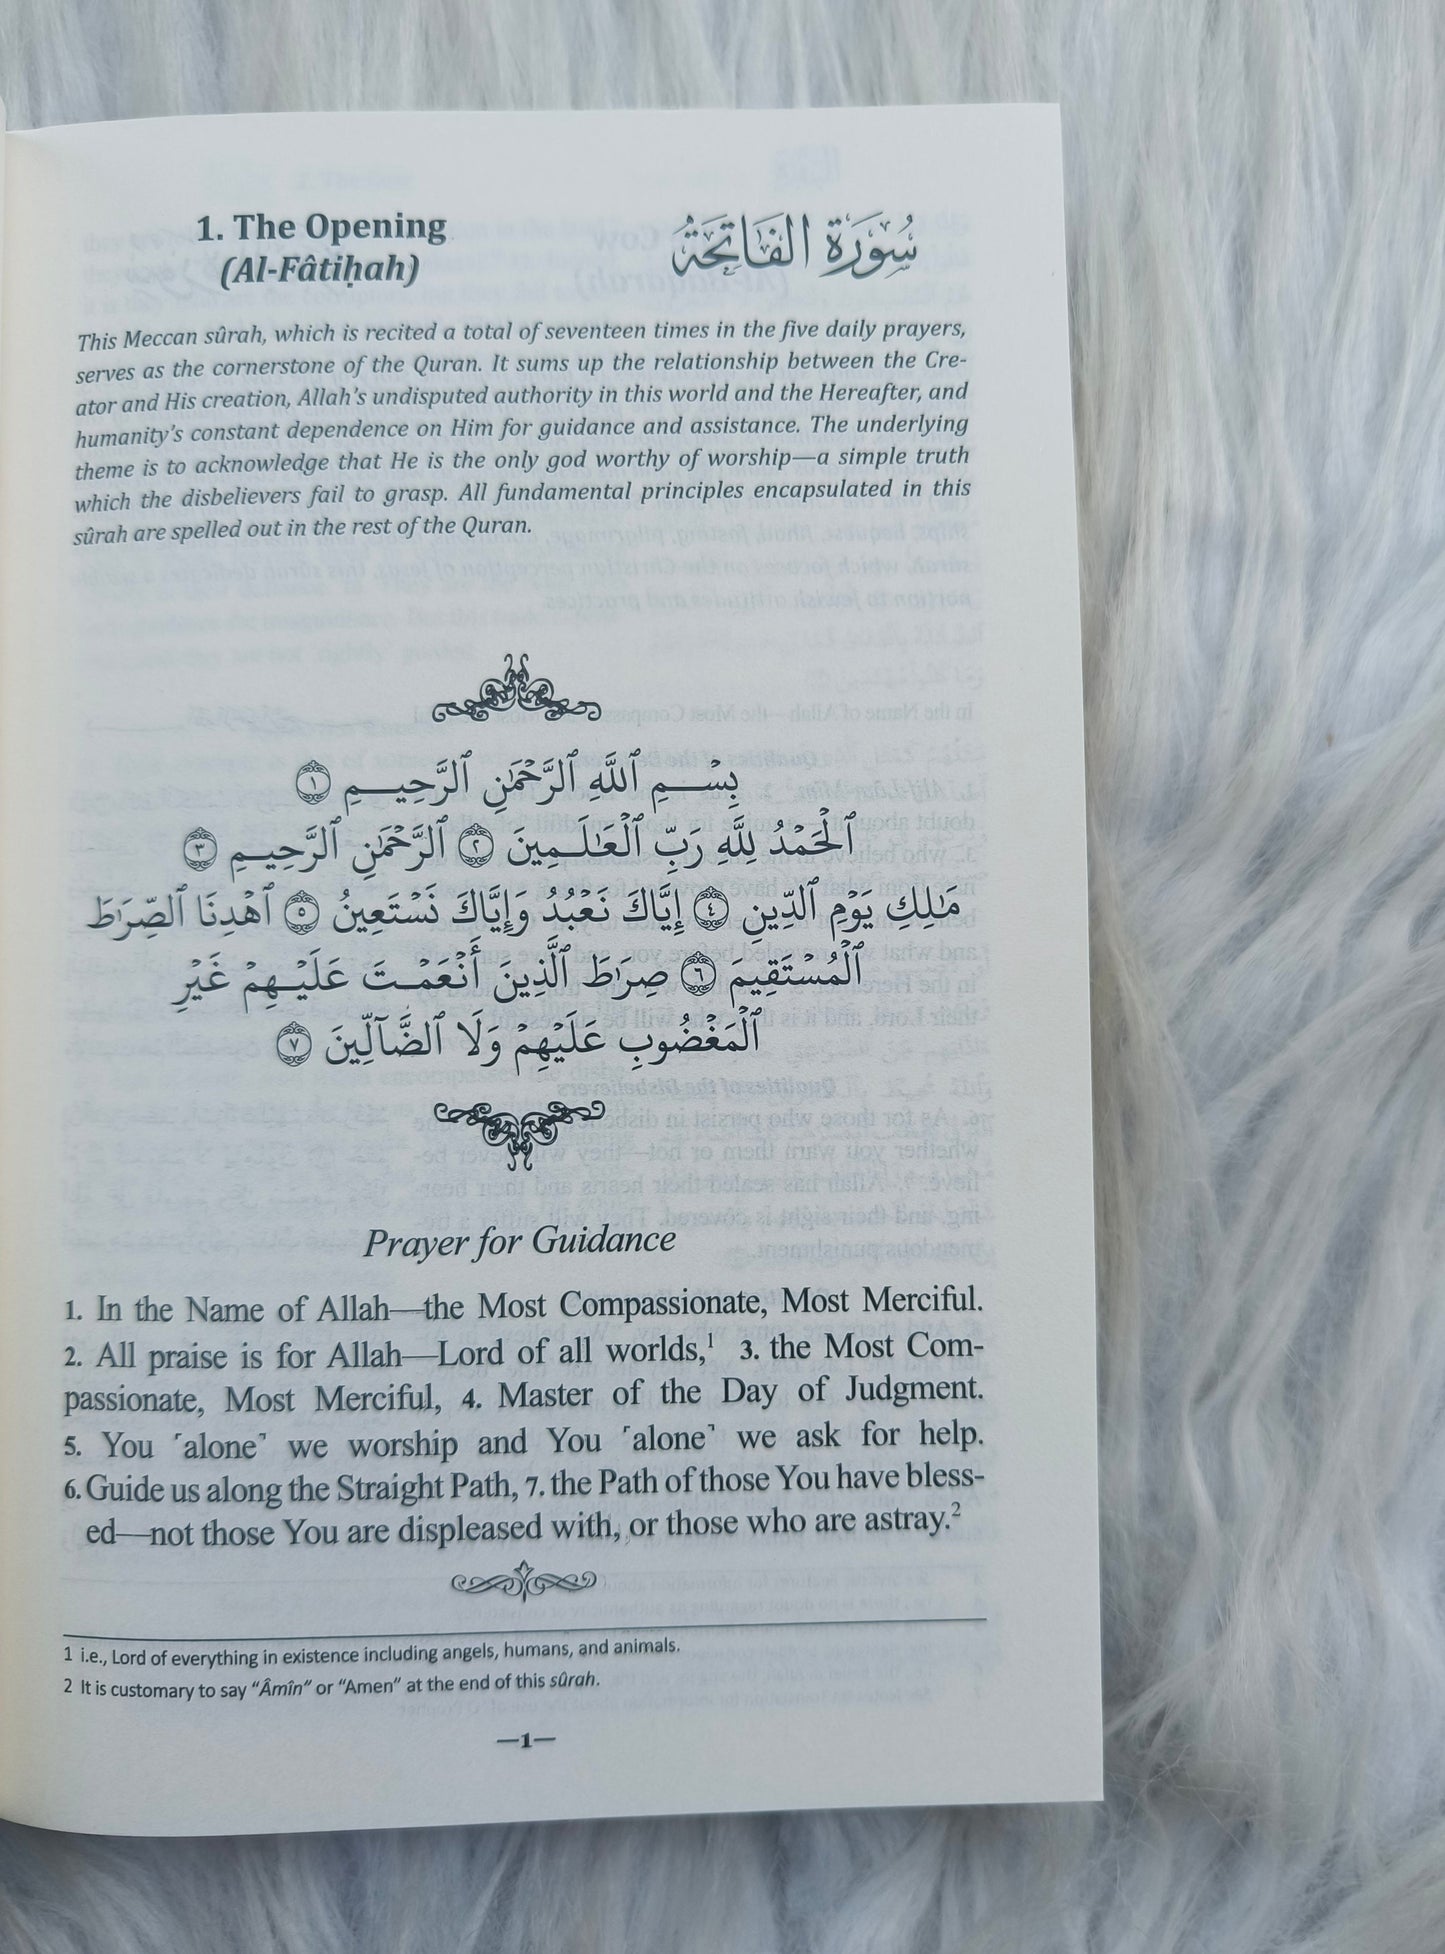 1. The Opening
(Al-Fâtiḥah)
سُورَةُ الفَاتِحَةُ
This Meccan sûrah, which is recited a total of seventeen times in the five daily prayers,
serves as the cornerstone of the Quran. It sums up the relationship between the Cre-
ator and His creation, Allah's undisputed authority in this world and the Hereafter, and
humanity's constant dependence on Him for guidance and assistance. The underlying
theme is to acknowledge that He is the only god worthy of worship—a simple truth
which the disbelievers fail to grasp. All fundamental principles encapsulated in this
sûrah are spelled out in the rest of the Quran.
بِسْمِ ٱللَّهِ ٱلرَّحْمَٰنِ ٱلرَّحِيمِ ١
ٱلْحَمْدُ لِلَّهِ رَبِّ ٱلْعَٰلَمِينَ ٢ ٱلرَّحْمَٰنِ ٱلرَّحِيمِ ٣
مَٰلِكِ يَوْمِ ٱلدِّينِ ٤ إِيَّاكَ نَعْبُدُ وَإِيَّاكَ نَسْتَعِينُ ٥ ٱهْدِنَا ٱلصِّرَٰطَ
ٱلْمُسْتَقِيمَ ٦ صِرَٰطَ ٱلَّذِينَ أَنْعَمْتَ عَلَيْهِمْ غَيْرِ
ٱلْمَغْضُوبِ عَلَيْهِمْ وَلَا ٱلضَّآلِّينَ ٧
Prayer for Guidance
1. In the Name of Allah—the Most Compassionate, Most Merciful.
2. All praise is for Allah—Lord of all worlds,¹ 3. the Most Com-
passionate, Most Merciful, 4. Master of the Day of Judgment.
5. You ˹alone˺ we worship and You ˹alone˺ we ask for help.
6. Guide us along the Straight Path, 7. the Path of those You have bless-
ed—not those You are displeased with, or those who are astray.²
1 i.e., Lord of everything in existence including angels, humans, and animals.
2 It is customary to say “Âmîn” or “Amen” at the end of this sûrah.
—1—